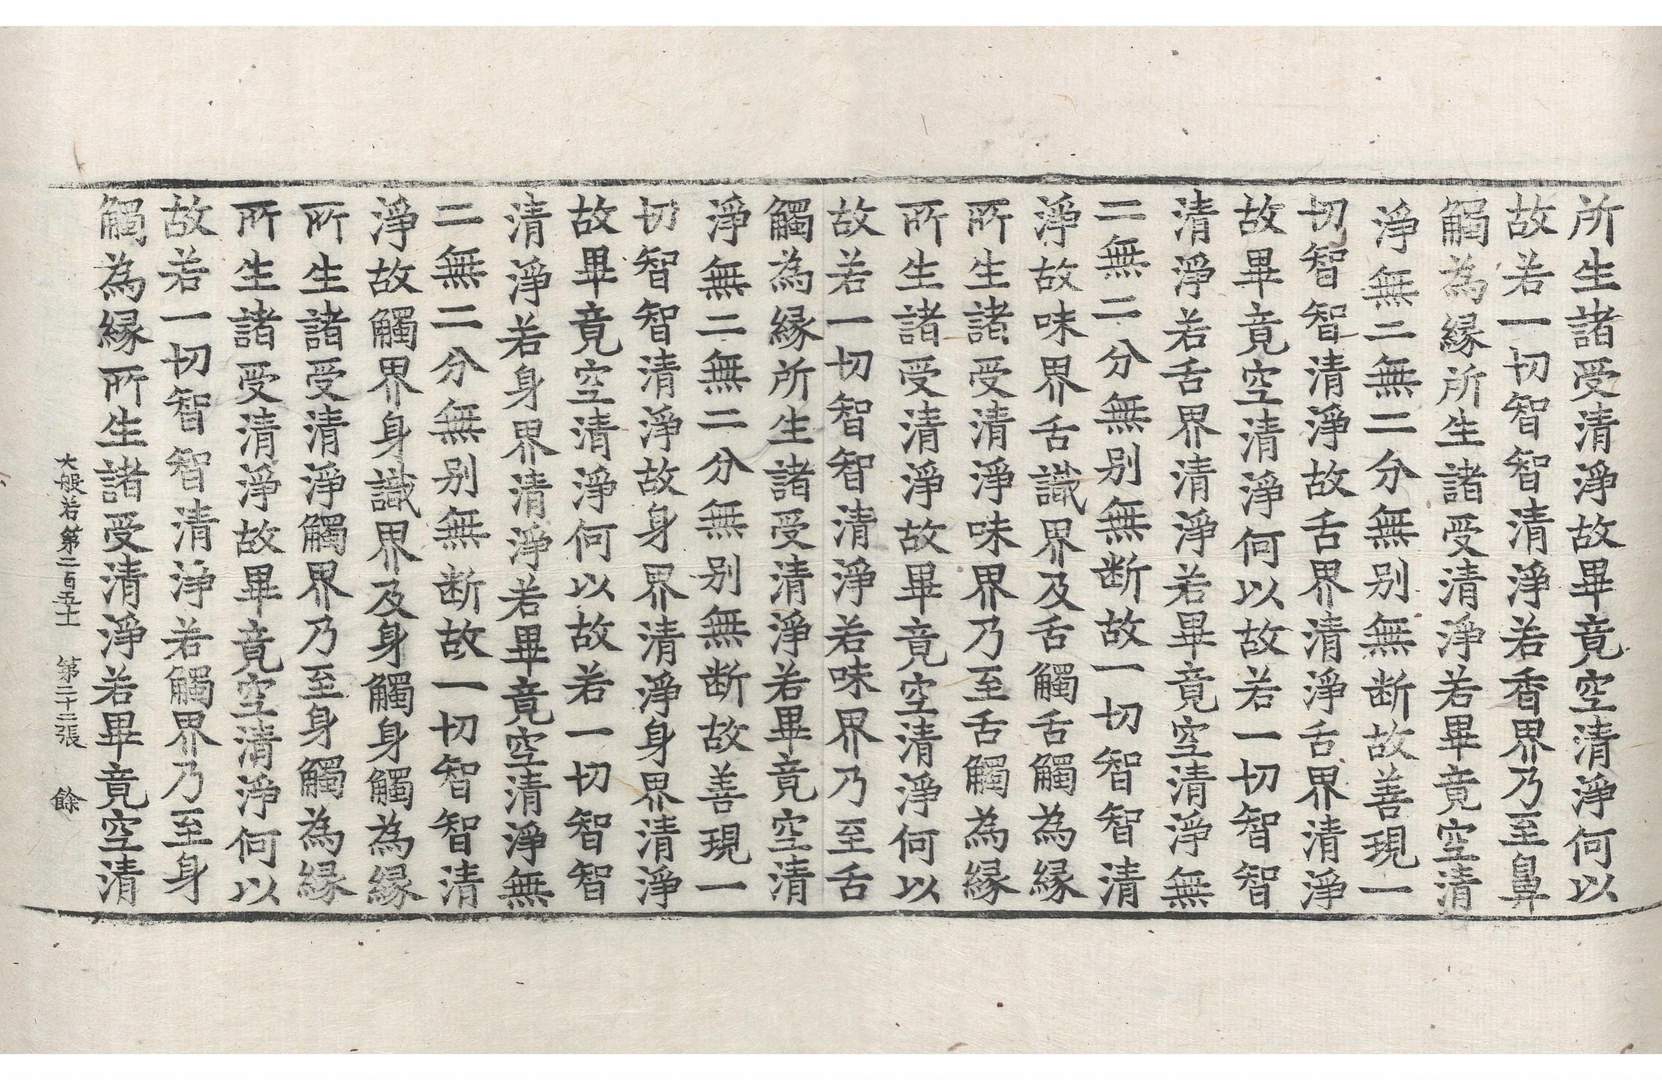 所生諸受清淨故畢竟空清淨何以
故若一切智智清淨若香界乃至鼻
觸為縁所生諸受清淨若畢竟空清
淨無二無二分無别無断故善現一
切智智清淨故舌界清淨舌界清淨
故畢竟空清淨何以故若一切智智
清淨若舌界清淨若畢竟空清淨無
二無二分無别無断故一切智智清
淨故味界舌識界及舌觸舌觸為縁
所生諸受清淨味界乃至舌觸為縁
所生諸受清淨故畢竟空清淨何以
故若一切智智清淨若味界乃至舌
觸為縁所生諸受清淨若畢竟空清
淨無二無二分無别無断故善現一
切智智清淨故身界清淨身界清淨
故畢竟空清淨何以故若一切智智
清淨若身界清淨若畢竟空清淨無
二無二分無别無断故一切智智清
淨故觸界身識界及身觸身觸為縁
所生諸受清淨觸界乃至身觸為縁
所生諸受清淨故畢竟空清淨何以
故若一切智智清淨若觸界乃至身
觸為縁所生諸受清淨若畢竟空清
大般若第二百五十 第二十二張 餘